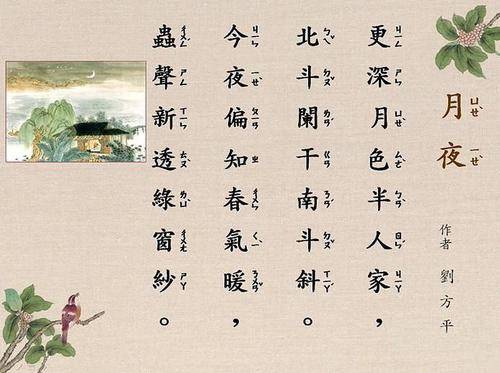 月夜
作者 劉方平
更深月色半人家，
北斗闌干南斗斜。
今夜偏知春氣暖，
蟲聲新透綠窗紗。